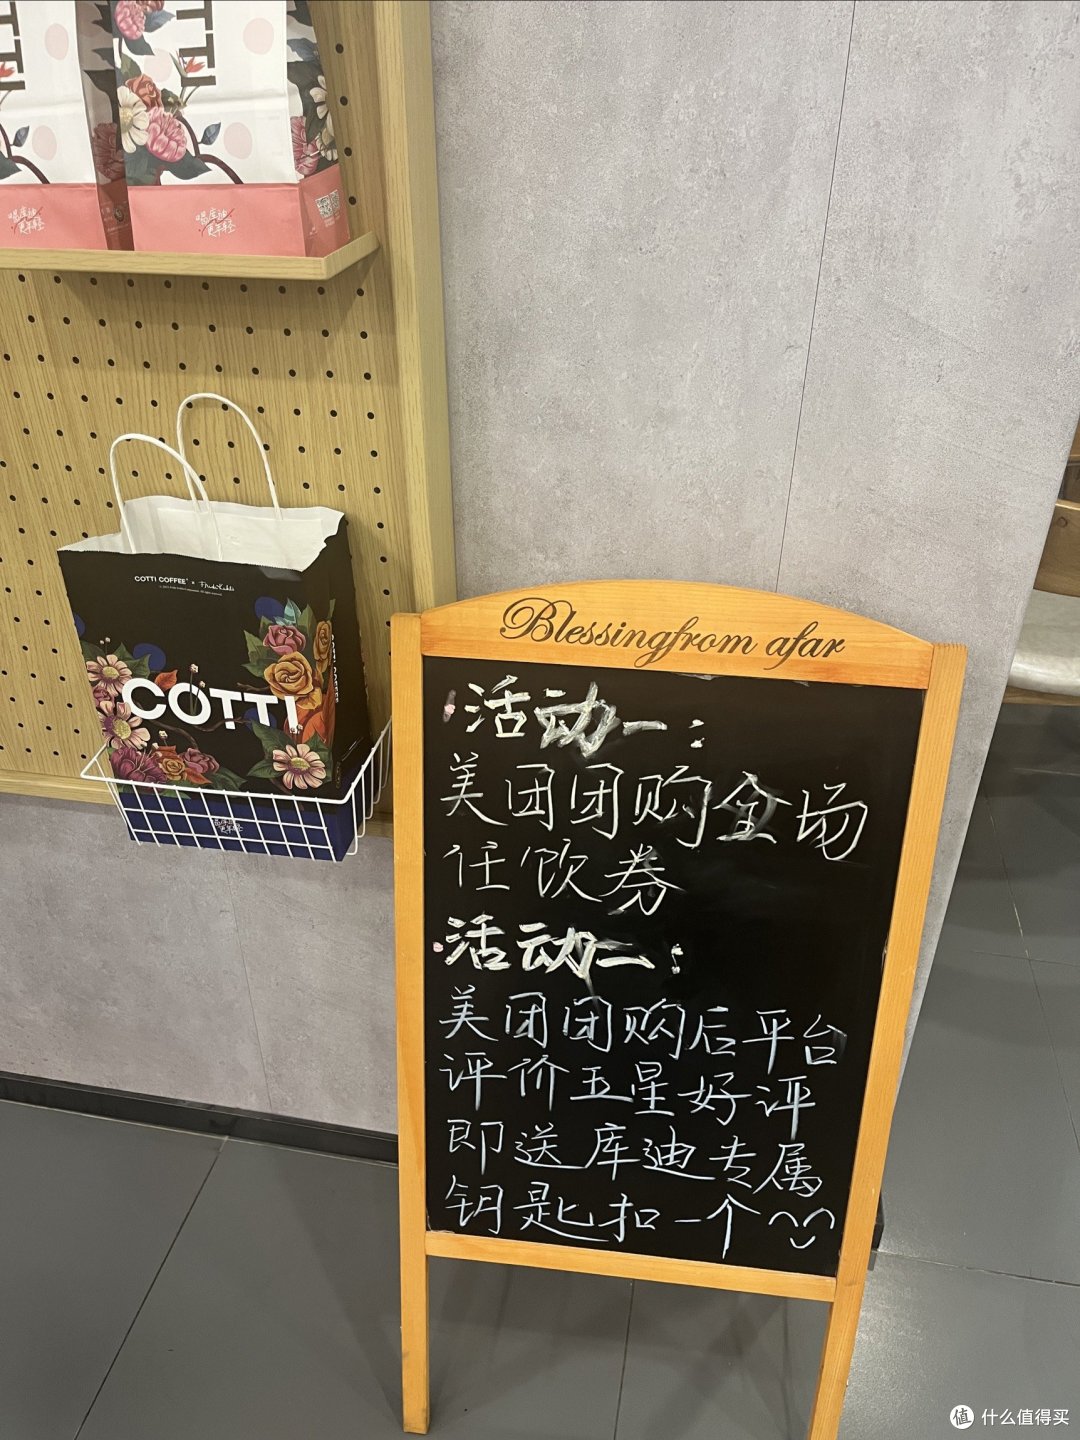 TTI
TTI
喝库迪
更年轻
喝库迪
更年轻
COTTI COFFEE
COTTI
Blessingfrom afar
活动一：
美团团购全场
任饮券
活动二：
美团团购后平台
评价五星好评
即送库迪专属
钥匙扣一个
值 什么值得买